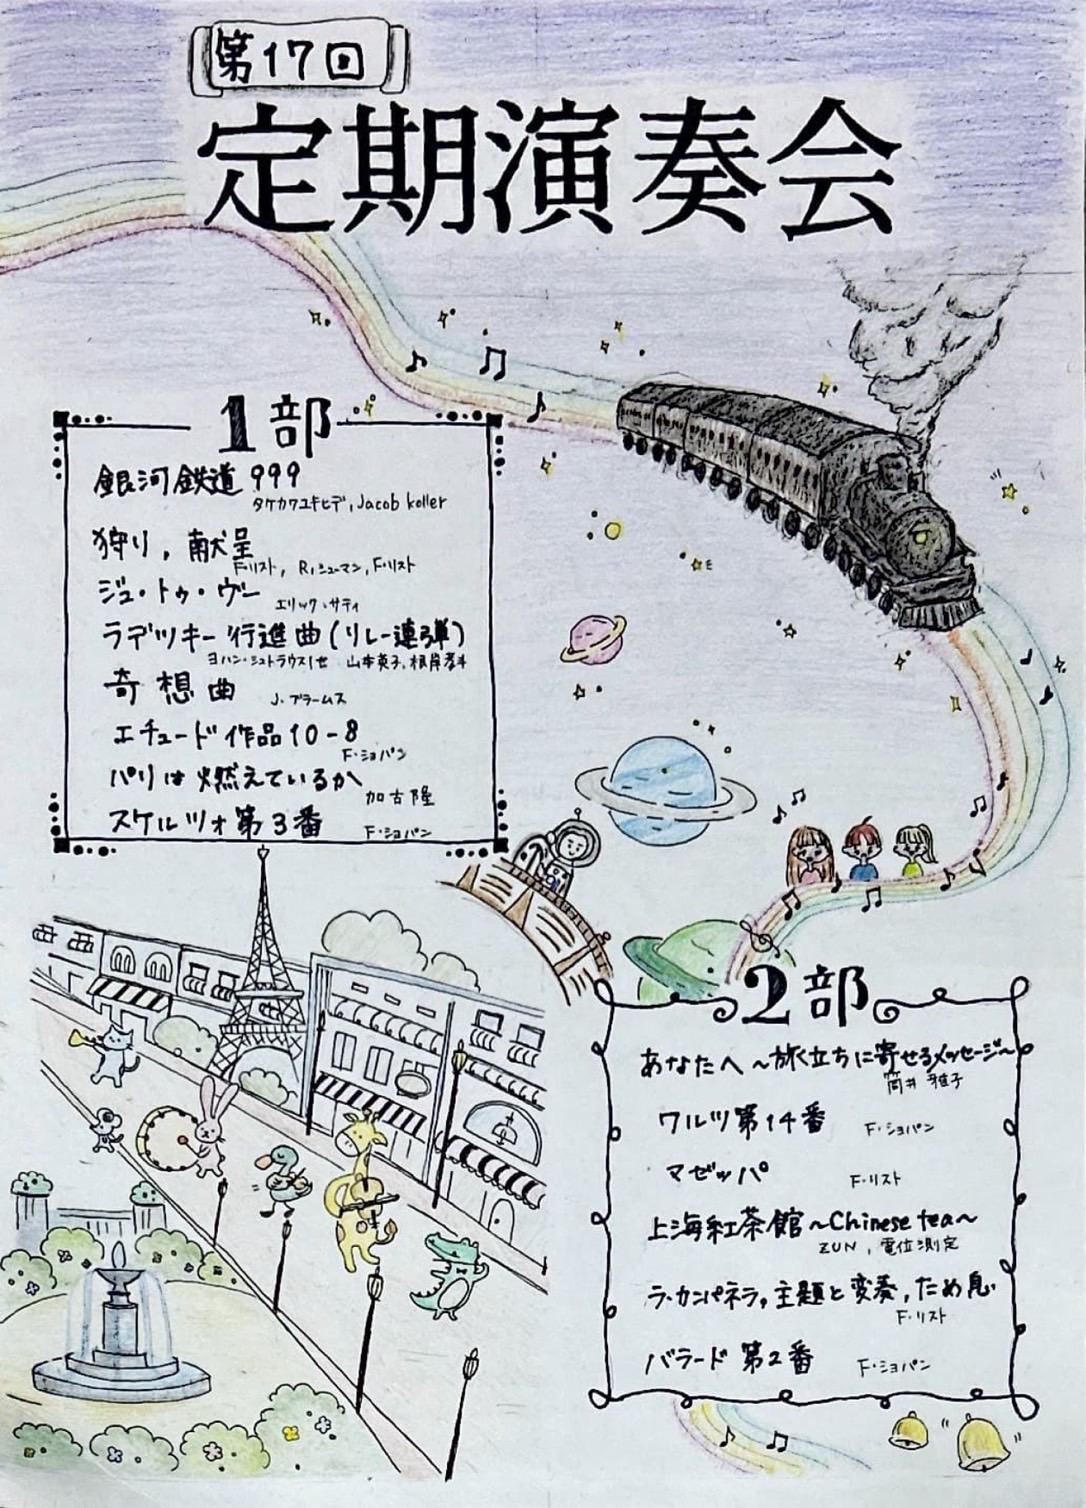 第17回
定期演奏会
1部
銀河鉄道999
タケカワユキヒデ, Jacob koller
狩り, 献呈
F.リスト, R.シューマン, F.リスト
ジュ・トゥ・ヴー
エリック・サティ
ラデツキー行進曲(リレー連弾)
ヨハン・シュトラウス1世 山本英子, 根岸孝斗
奇想曲
J.ブラームス
エチュード作品10-8
F・ショパン
パリは燃えているか
加古隆
スケルツォ第3番
F・ショパン
2部
あなたへ ~旅立ちに寄せるメッセージ~
筒井雅子
ワルツ第14番
F・ショパン
マゼッパ
F・リスト
上海紅茶館~Chinese tea~
ZUN, 電位測定
ラ・カンパネラ, 主題と変奏, ため息
F・リスト
バラード第2番
F・ショパン